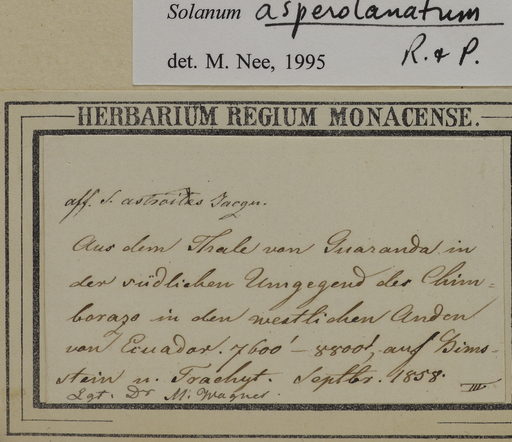 Solanum asperolanatum
R. & P.
det. M. Nee, 1995
HERBARIUM REGIUM MONACENSE.
aff. S. astroites Jacqu.
Aus dem Thale von Guaranda in
der südlichen Umgegend des Chim-
borazo in den westlichen Anden
von Ecuador. 7600' - 8800', auf Bims-
stein u. Trachyt. Septbr. 1858.
III.
Lgt. Dr M. Wagner.